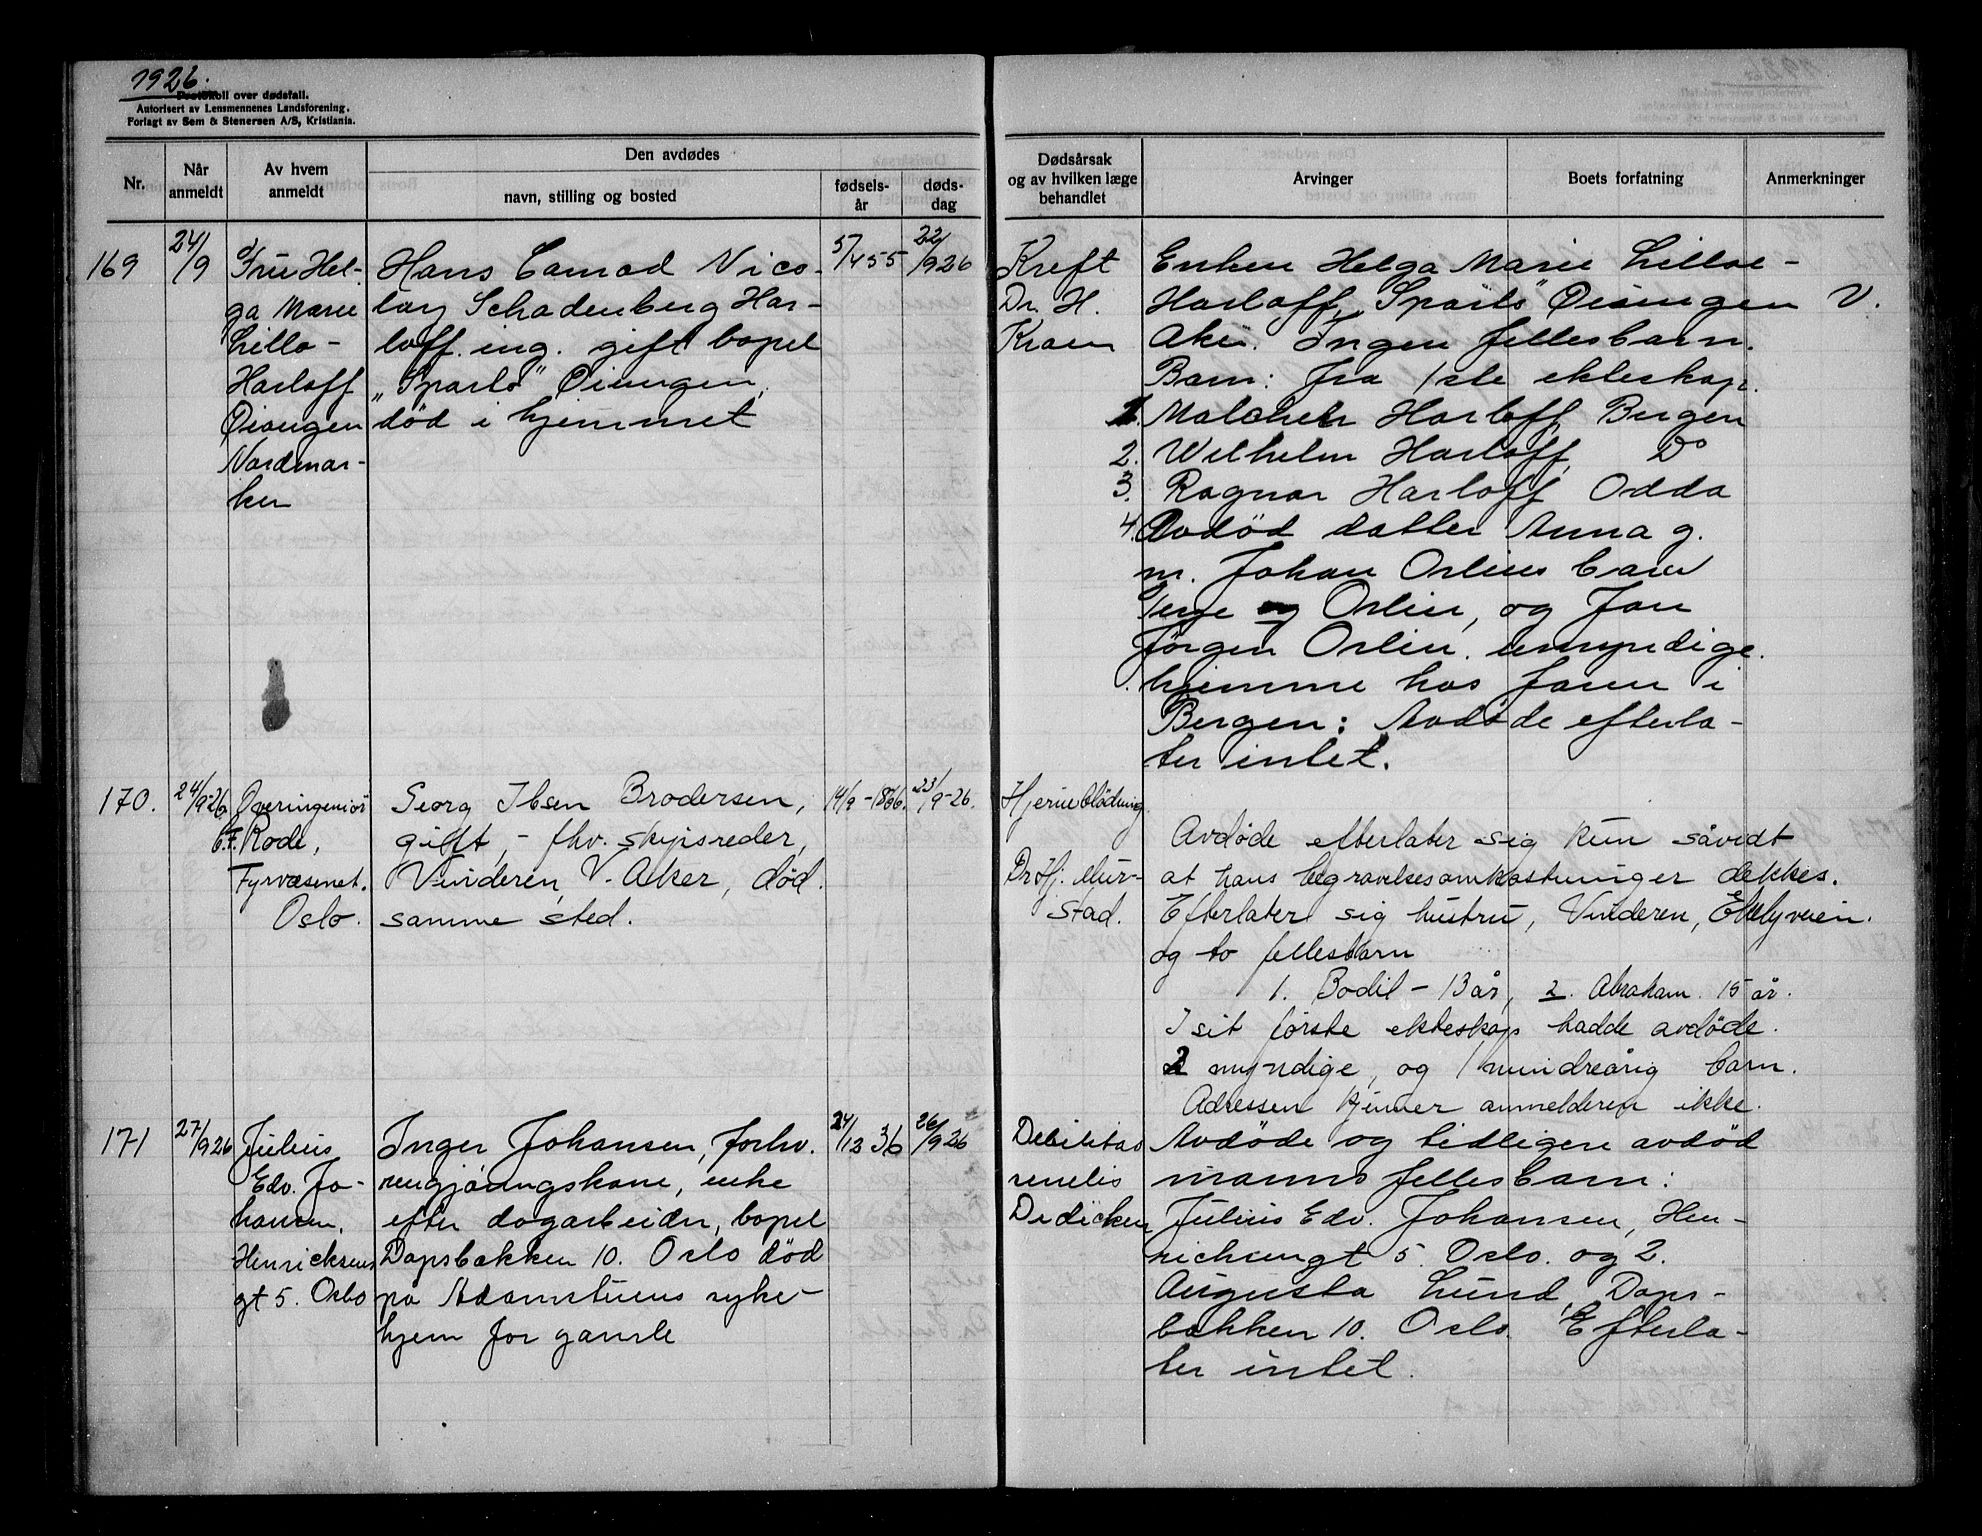 1926.
Protokoll over dødsfall.
Autorisert av Lensmennenes Landsforening.
Forlagt av Sem & Stenersen A/S, Kristiania.
Nr.
Når anmeldt
Av hvem anmeldt
Den avdødes
navn, stilling og bosted
fødsels-
år
døds-
dag
Dødsårsak
og av hvilken læge
behandlet
Arvinger
Boets forfatning
Anmerkninger
169
24/9
Fru Hel-
ga Marie
Lillo-
Harloff
Øiungen
Nordmar-
ken
Hans Conrad Nico-
lay Schadenberg Har-
loff. ing. gift bopel
„Sparls" Øiungen,
død i hjemmet
5/4 55
22/9 26
Kreft
Dr. H.
Enken Helga Marie Lilloe-
Harloff, „Sparls" Øiungen V.
Aker. Ingen fellesbarn.
Barn: fra 1ste ekteskap.
1. Harloff, Bergen
2. Wilhelm Harloff, Do
3. Ragnar Harloff Odda
4. Avdød datter Anna g.
m. Johan Orlins barn
Terje Orlin, og Jan
Jørgen Orlin. umyndige.
hjemme hos faren i
Bergen: Avdøde efterla-
ter intet.
170.
24/9-26.
Overingeniør
C.F. Rode,
Fyrvæsenet.
Oslo.
Georg Ibsen Brodersen,
gift, - fhv. skipsreder,
Vinderen, V. Aker, død.
samme sted.
14/9-1866.
23/9-26.
Hjerneblødning
Dr Hj. Mur-
stad.
Avdøde efterlater sig kun såvidt
at hans begravelsesomkostninger dekkes.
Efterlater sig hustru, Vinderen, Ekelyveien.
og to fellesbarn
1. Bodil - 13 år, 2. Abraham. 15 år.
I sit første ekteskap hadde avdøde.
2 myndige, og 1 mindreårig barn.
Adressen kjenner anmelderen ikke.
171
27/9 26
Julius
Edv. Jo-
hansen,
Henricksens
gt 5. Oslo
Inger Johansen, forhv.
rengjøringskone, enke
efter dagarbeider, bopel
Dapsbakken 10. Oslo død
på Adamstuens syke-
hjem for gamle
24/12 36
26/9 26
Debilitas
senilis
Avdøde og tidligere avdød
manns fellesbarn:
Julius Edv. Johansen, Hen-
richsensgt 5. Oslo. og 2.
Augusta Lund, Daps-
bakken 10. Oslo. Efterla-
ter intet.